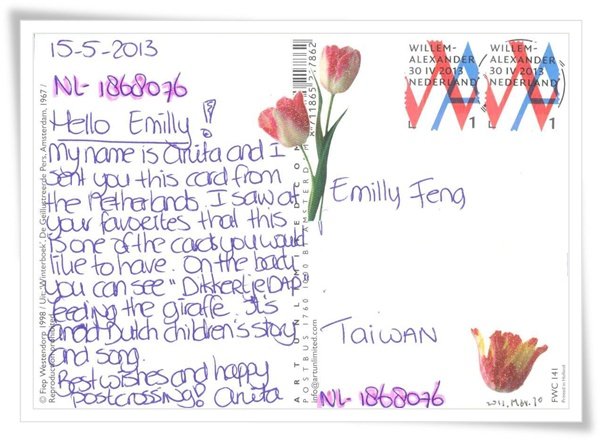 15-5-2013
NL-1868076
Hello Emilly!
My name is Anita and I
sent you this card from
the Netherlands. I saw at
your favorites that this
is one of the cards you would
like to have. On the back
you can see "Dikkertje DAP"
feeding the giraffe. It's
an old Dutch children's story
and song.
Best wishes and happy
postcrossing! Anita
© Fiep Westendorp 1998 / Uit: 'Winterboek', De Geïllustreerde Pers, Amsterdam, 1967 /
ART UNLIMITED
POSTBUS 1760 1000 BT AMSTERDAM
info@artunlimited.com
WILLEM-
ALEXANDER
30 IV 2013
NEDERLAND
1
WILLEM-
ALEXANDER
30 IV 2013
NEDERLAND
1
Emilly Feng
TAIWAN
NL-1868076
FWC 141
Printed in Holland